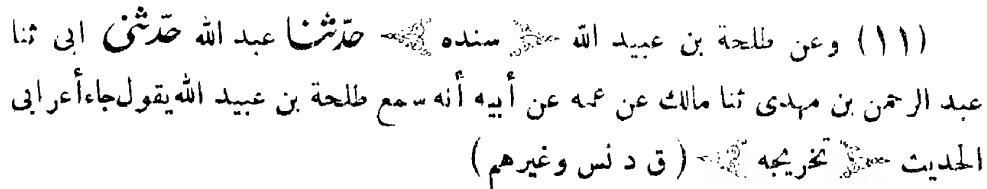 (١١) وعن طلحة بن عبيد الله ﴿ سنده ﴾ حدّثنا عبد الله حدّثنى ابى ثنا
عبد الرحمن بن مهدى ثنا مالك عن عمه عن أبيه أنه سمع طلحة بن عبيد الله يقول جاء أعرابى
الحديث ﴿ تخريجه ﴾ (ق د نس وغيرهم)